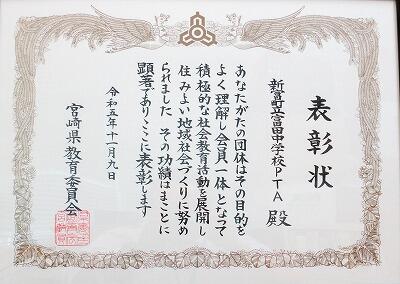 表彰状
新富町立富田中学校PTA 殿
あなたがたの団体はその目的を
よく理解し会員一体となって
積極的な社会教育活動を展開し
住みよい地域社会づくりに努め
られました その功績はまことに
顕著でありここに表彰します
令和五年十一月九日
宮崎県教育委員会